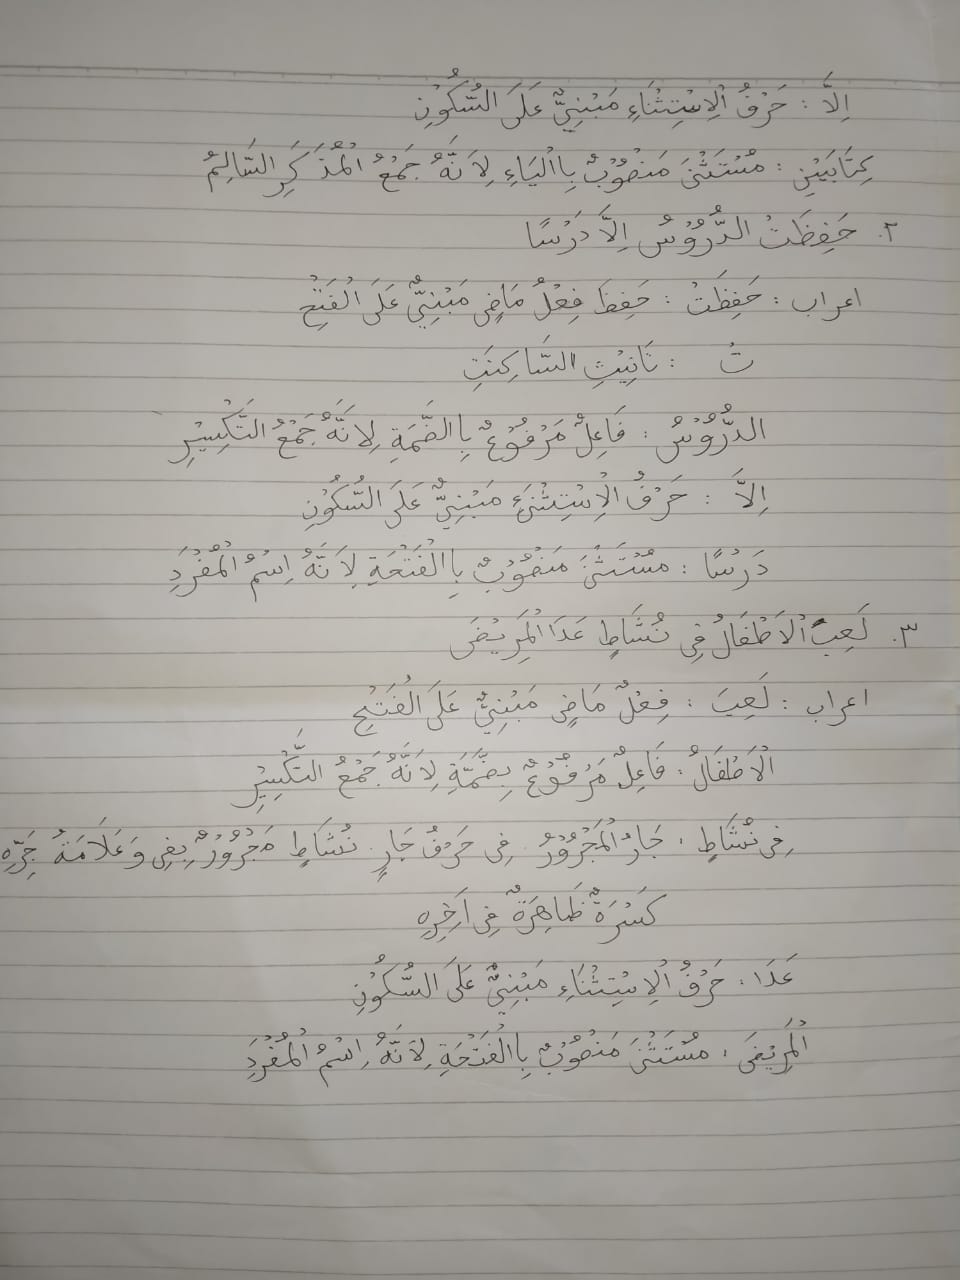 اِلاَّ : حَرْفُ الْاِسْتِثْنَاءِ مَبْنِيٌّ عَلَى السُّكُوْنِ
كِتَابَيْنِ : مُسْتَثْنَى مَنْصُوْبٌ بِاالْيَاءِ لِاَنَّهُ جَمْعُ الْمُذَكَرِ السَّالِمُ
٢. حَفِظَتْ الدُّرُوْسُ اِلاَّ دَرْسًا
اعراب : حَفِظَتْ : حَفِظَ فِعْلٌ مَاضِى مَبْنِيٌّ عَلَى الْفَتْحِ
تْ : تَانِيْثِ السَّاكِنَتِ
الدُّرُوْسُ : فَاعِلٌ مَرْفُوْعٌ بِاالضَّمَةِ لِانَّهُ جَمْعُ التَّكْسِيْرِ
اِلاَّ : حَرْفُ الْاِسْتِثْنَىءِ مَبْنِيٌّ عَلَى السُّكُوْنِ
دَرْسًا : مُسْتَثْنَى مَنْصُوْبٌ بِاالْفَتْحَةِ لِاَنَّهُ اِسْمُ الْمُفْرَدِ
٣. لَعِبَ الْاَطْفَالُ فِى نُشَاطٍ عَدَا الْمَرِيْضَ
اعراب : لَعِبَ : فِعْلٌ مَاضِى مَبْنِيٌّ عَلَى الْفَتْحِ
الْاَطْفَالُ : فَاعِلٌ مَرْفُوْعٌ بِضَمَّةِ لِاَنَّهُ جَمْعُ التَّكْسِيْرِ
فِى نُشَاطٍ : جَارُ الْمَجْرُوْرُ . فِى حَرْفُ جَارٍ . نُشَاطٍ مَجْرُوْرٌ بِفِى وَعَلَامَةُ جَرِّهِ
كَسْرَةٌ ظَاهِرَةٌ فِى اَخِرِهِ
عَدَا : حَرْفُ الْاِسْتِثْنَاءِ مَبْنِيٌّ عَلَى السُّكُوْنِ
الْمَرِيْضَ : مُسْتَثْنَى مَنْصُوْبٌ بِاالْفَتْحَةِ لِاَنَّهُ اِسْمُ الْمُفْرَدِ